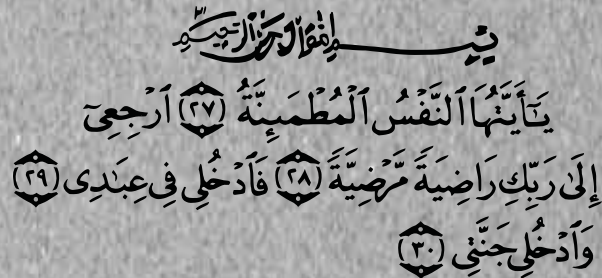 بسم الله الرحمن الرحيم
يَـٰٓأَيَّتُهَا ٱلنَّفْسُ ٱلْمُطْمَئِنَّةُ ﴿٢٧﴾ ٱرْجِعِىٓ
إِلَىٰ رَبِّكِ رَاضِيَةً مَّرْضِيَّةً ﴿٢٨﴾ فَٱدْخُلِى فِى عِبَـٰدِى ﴿٢٩﴾
وَٱدْخُلِى جَنَّتِى ﴿٣٠﴾